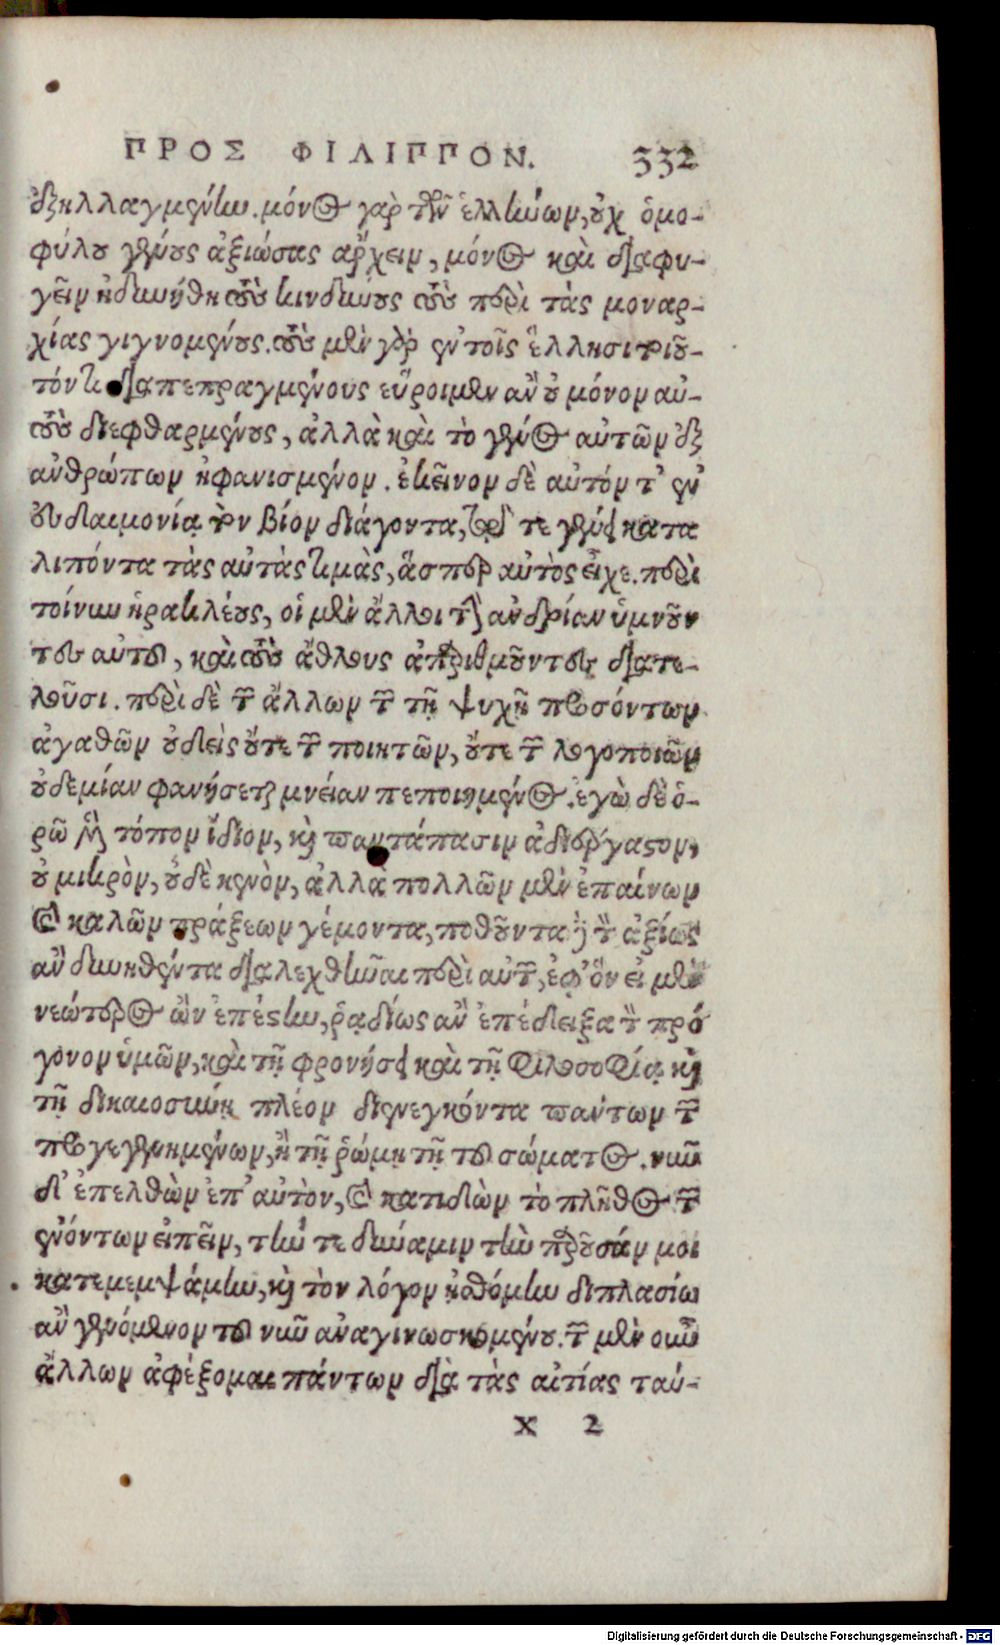 ΠΡΟΣ ΦΙΛΙΠΠΟΝ. 332
ἐξηλλαγμένην. μόνος γὰρ τῶν ἑλλήνων, οὐχ ὁμο-
φύλου γένους ἀξιώσας ἄρχειν, μόνος καὶ διαφυ-
γεῖν ἠδυνήθη τοὺς κινδύνους τοὺς περὶ τὰς μοναρ-
χίας γιγνομένους. τοὺς μὲν γὰρ ἐν τοῖς ἕλλησι τοιοῦ-
τόν τι διαπεπραγμένους εὕροιμεν ἂν οὐ μόνον αὐ-
τοὺς διεφθαρμένους, ἀλλὰ καὶ τὸ γένος αὐτῶν ἐξ
ἀνθρώπων ἠφανισμένον. ἐκεῖνον δὲ αὐτόν τ' ἐν
εὐδαιμονίᾳ τὸν βίον διάγοντα, τῷ τε γένει κατα
λιπόντα τὰς αὐτὰς τιμὰς, ἅσπερ αὐτὸς εἶχε. περὶ
τοίνυν ἡρακλέους, οἱ μὲν ἄλλοι τὴν ἀνδρίαν ὑμνοῦν
τες αὐτοῦ, καὶ τοὺς ἄθλους ἀπαριθμοῦντες διατε-
λοῦσι. περὶ δὲ τῶν ἄλλων τῶν τῇ ψυχῇ προσόντων
ἀγαθῶν οὐδεὶς οὔτε τῶν ποιητῶν, οὔτε τῶν λογοποιῶν
οὐδεμίαν φανήσεται μνείαν πεποιημένος. ἐγὼ δὲ ὁ-
ρῶ μὲν τόπον ἴδιον, καὶ παντάπασιν ἀδιέργαστον,
οὐ μικρὸν, οὐδὲ κενὸν, ἀλλὰ πολλῶν μὲν ἐπαίνων
καὶ καλῶν πράξεων γέμοντα, ποθοῦντα δὲ τὸν ἀξίως
ἂν δυνηθέντα διαλεχθῆναι περὶ αὐτῶν, ἐφ' ὃν εἰ μὲν
νεώτερος ὢν ἐπέστην, ῥᾳδίως ἂν ἐπέδειξα τὸν πρό
γονον ὑμῶν, καὶ τῇ φρονήσει καὶ τῇ φιλοσοφίᾳ καὶ
τῇ δικαιοσύνῃ πλέον διενεγκόντα πάντων τῶν
προγεγενημένων, ἢ τῇ ῥώμῃ τῇ τοῦ σώματος. νῦν
δ' ἐπελθὼν ἐπ' αὐτὸν, καὶ κατιδὼν τὸ πλῆθος τῶν
ἐνόντων εἰπεῖν, τήν τε δύναμιν τὴν παροῦσάν μοι
κατεμεμψάμην, καὶ τὸν λόγον ᾐσθόμην διπλασίω
ἂν γενόμενον τοῦ νῦν ἀναγινωσκομένου. τῶν μὲν οὖν
ἄλλων ἀφέξομαι πάντων διὰ τὰς αἰτίας ταύ-
X 2
Digitalisierung gefördert durch die Deutsche Forschungsgemeinschaft - DFG